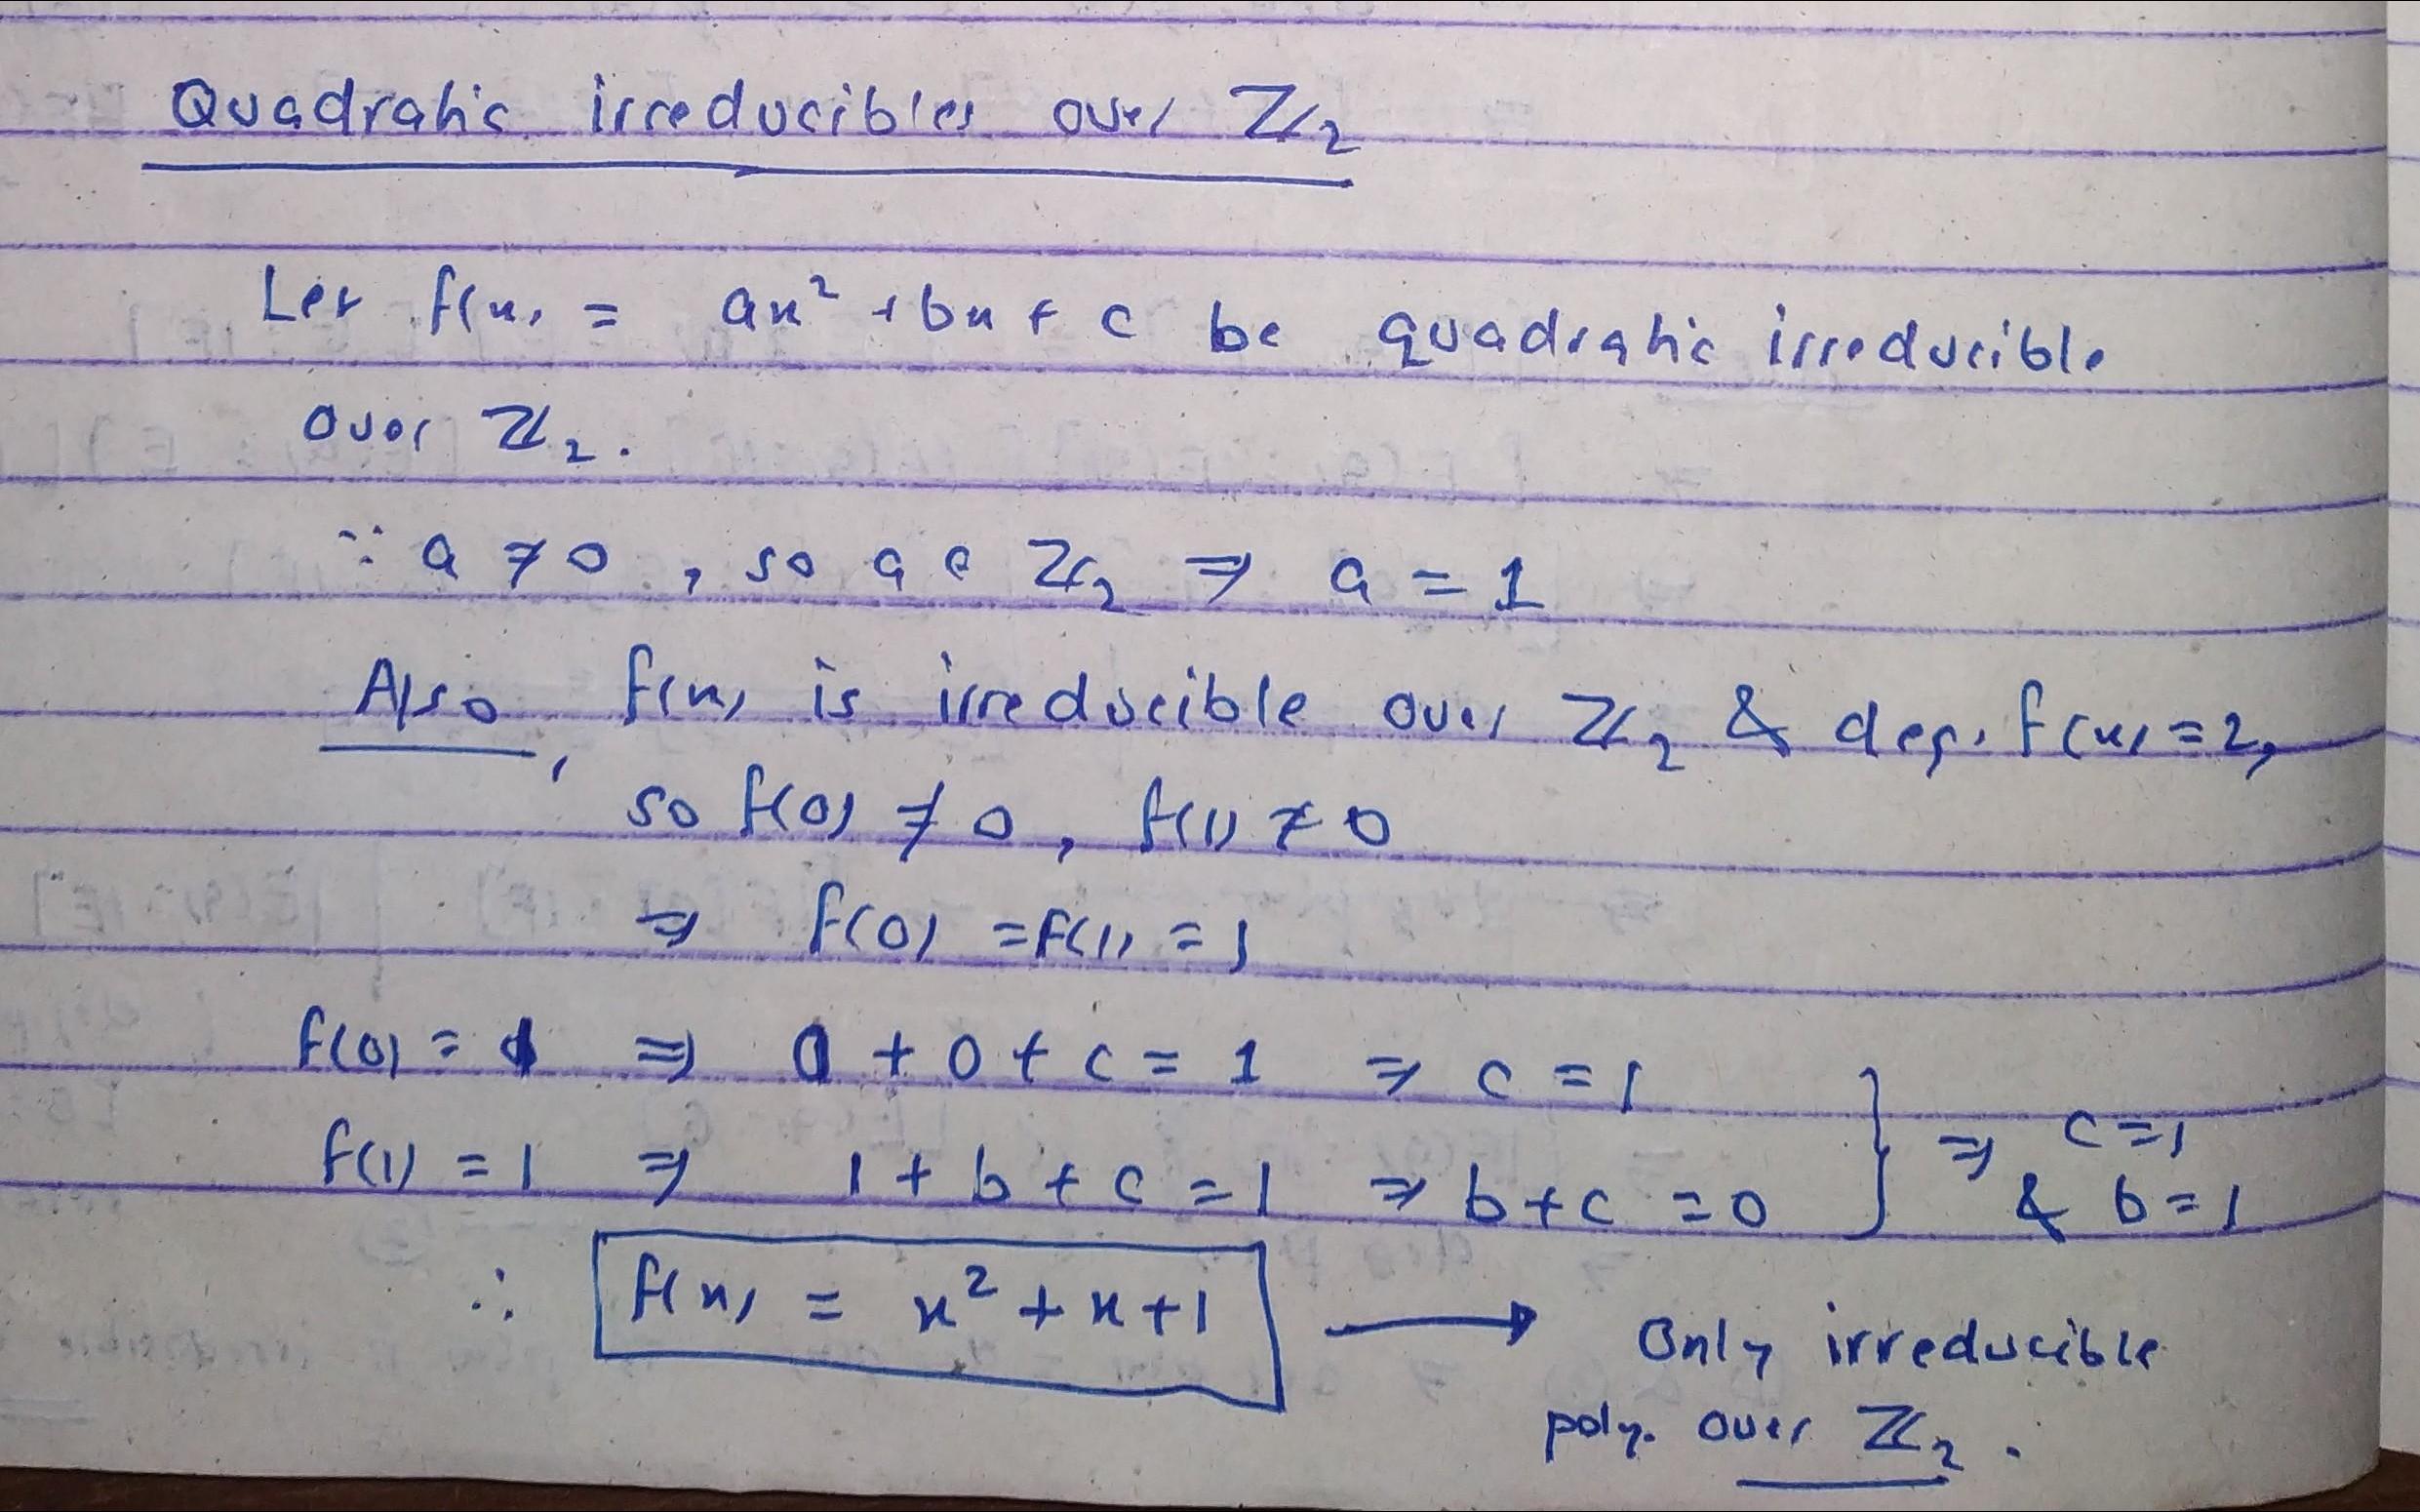 Quadratic irreducibles over ℤ₂
Let f(x) = ax² + bx + c be quadratic irreducible
over ℤ₂.
∵ a ≠ 0, so a ∈ ℤ₂ ⇒ a = 1
Also, f(x) is irreducible over ℤ₂ & deg. f(x) = 2,
so f(0) ≠ 0, f(1) ≠ 0
⇒ f(0) = f(1) = 1
f(0) = 1 ⇒ 0 + 0 + c = 1 ⇒ c = 1
f(1) = 1 ⇒ 1 + b + c = 1 ⇒ b + c = 0 } ⇒ c = 1
& b = 1
∴ f(x) = x² + x + 1 → Only irreducible
poly. over ℤ₂.